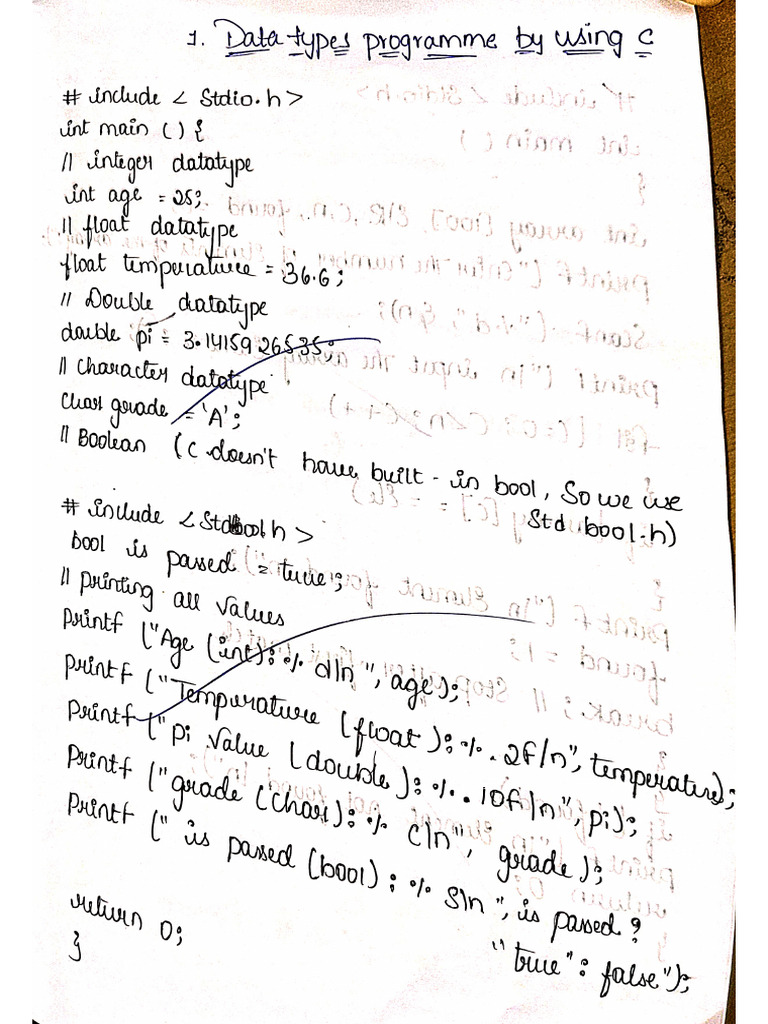 1. Data types programme by using C
# include < Stdio.h>
int main () {
// integer datatype
int age = 25;
// float datatype
float temperature = 36.6;
// Double datatype
double pi = 3.1415926535;
// character datatype
Char grade = 'A';
// Boolean (C doesn't have built-in bool, So we use
Std bool.h)
# include <Stdbool.h>
bool is passed = true;
// printing all values
Printf ("Age (int): % d\n", age);
Printf ("Temperature (float): %.2f/n", temperature);
Printf ("pi value (double): %.10f/n", pi);
Printf ("grade (char): % c\n", grade);
Printf (" is passed (bool) : % s\n ", is passed ?
"true" : false");
return 0;
}